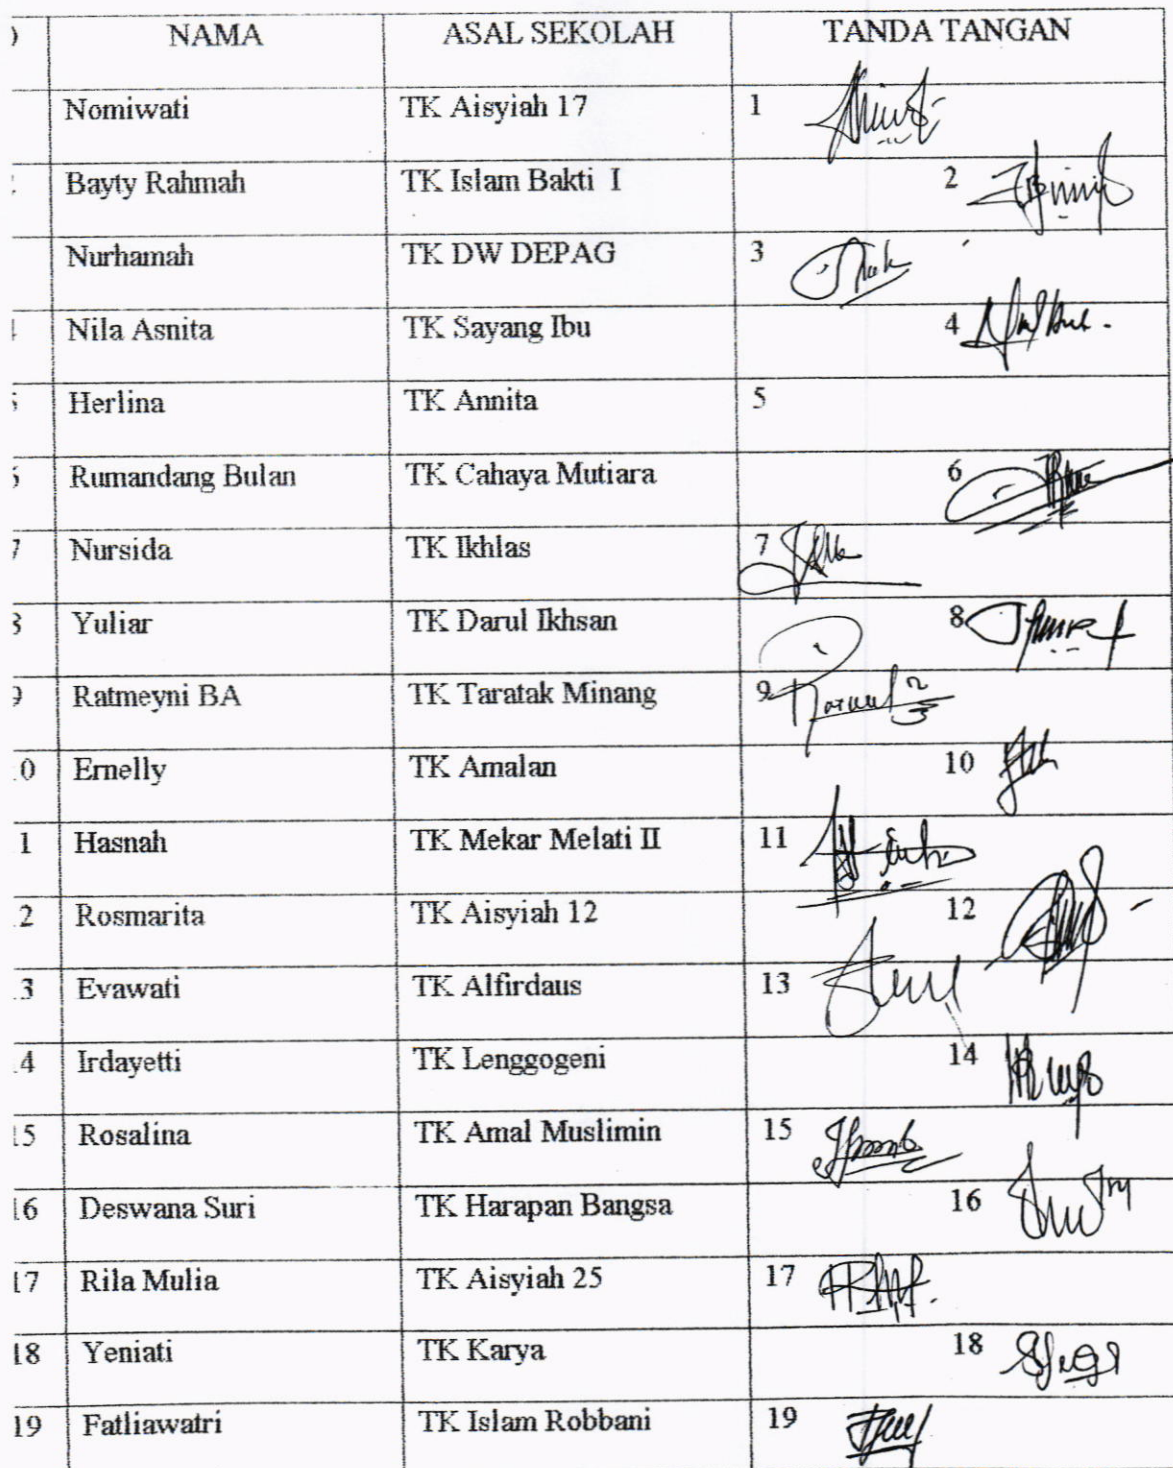 NAMA ASAL SEKOLAH TANDA TANGAN
Nomiwati TK Aisyiah 17 1
Bayty Rahmah TK Islam Bakti I 2
Nurhamah TK DW DEPAG 3
Nila Asnita TK Sayang Ibu 4
Herlina TK Annita 5
Rumandang Bulan TK Cahaya Mutiara 6
7 Nursida TK Ikhlas 7
8 Yuliar TK Darul Ikhsan 8
9 Ratmeyni BA TK Taratak Minang 9
0 Ernelly TK Amalan 10
1 Hasnah TK Mekar Melati II 11
2 Rosmarita TK Aisyiah 12 12
3 Evawati TK Alfirdaus 13
4 Irdayetti TK Lenggogeni 14
15 Rosalina TK Amal Muslimin 15
16 Deswana Suri TK Harapan Bangsa 16
17 Rila Mulia TK Aisyiah 25 17
18 Yeniati TK Karya 18
19 Fatliawatri TK Islam Robbani 19